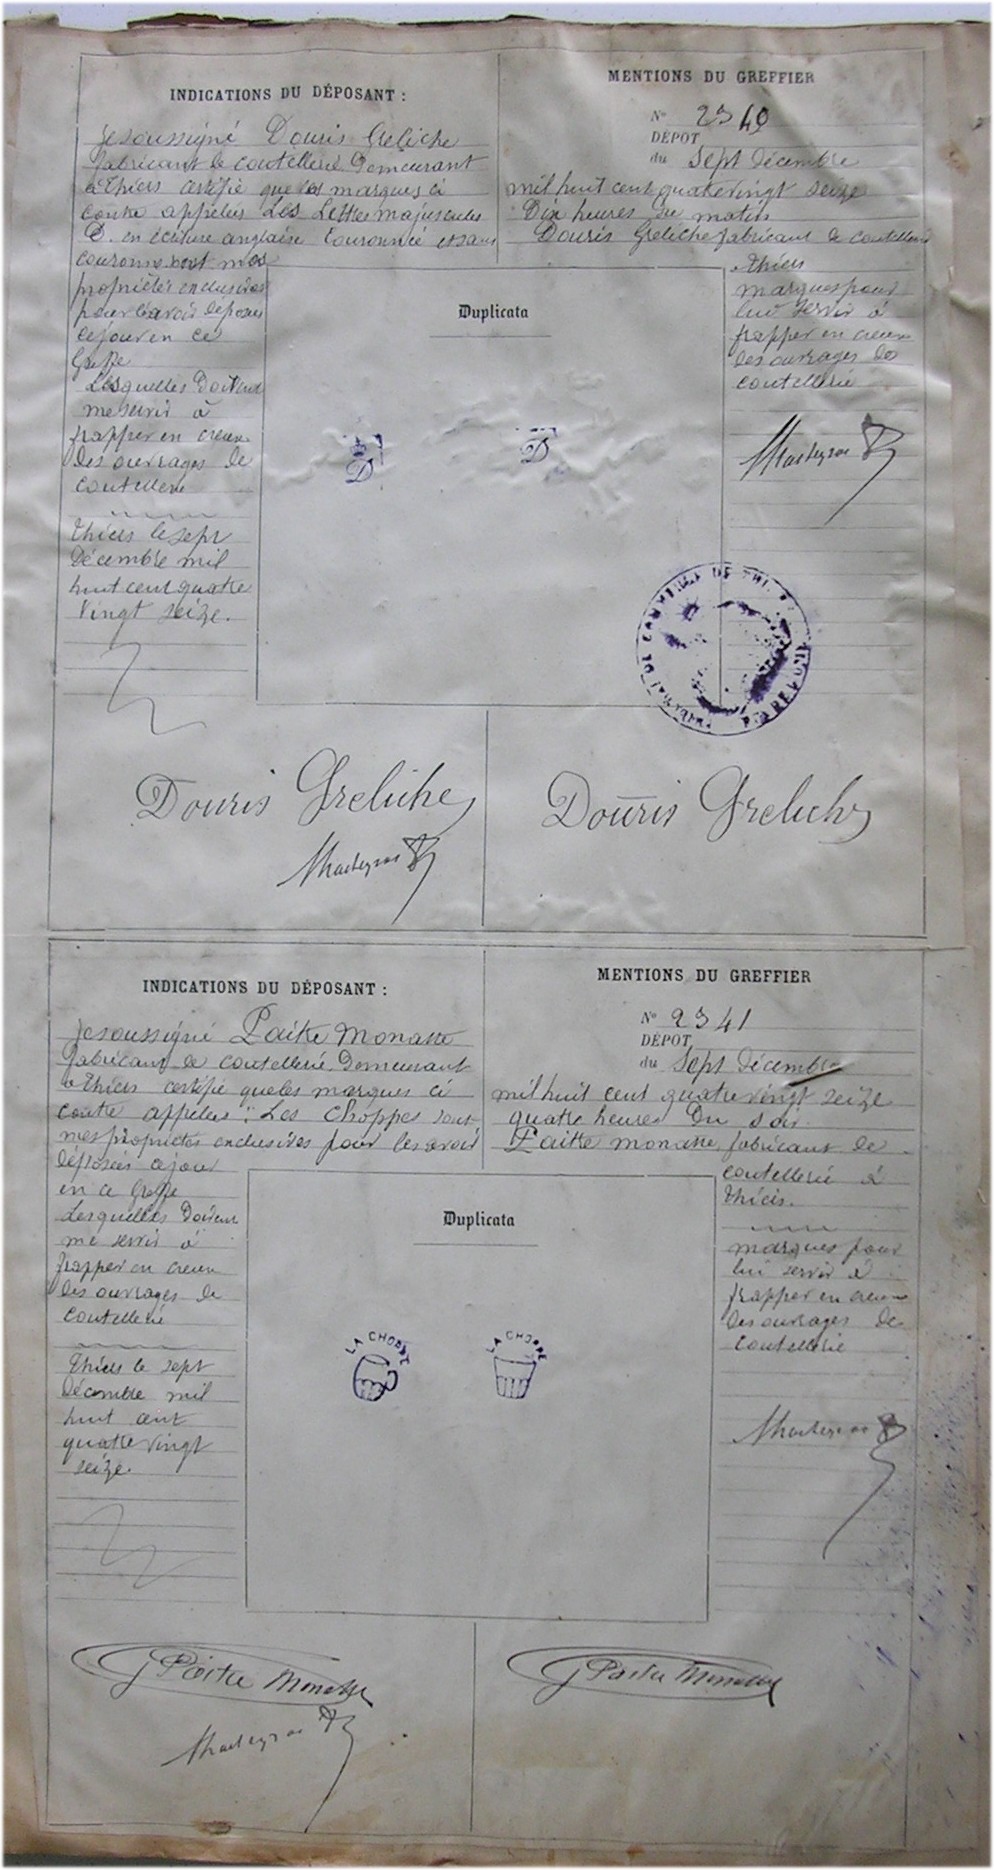 INDICATIONS DU DÉPOSANT :
Je soussigné Douris Greliche
fabricant de coutellerie Demeurant
à Thiers certifie que les marques ci
contre appelées Les Lettres majuscules
D. en écriture anglaise Couronné et sans
couronne sont mes
propriétés exclusives
pour l'avoir déposé
ce jour en ce
Greffe
Lesquelles Doivent
me servir à
frapper en creux
des ouvrages de
coutellerie
Thiers le sept
Décembre mil
huit cent quatre
vingt seize.
MENTIONS DU GREFFIER
N° 2340
DÉPÔT
du Sept Décembre
mil huit cent quatre vingt seize
Dix heures du matin
Douris Greliche fabricant de coutellerie
Thiers
marques pour
lui servir à
frapper en creux
des ouvrages de
coutellerie
Duplicata
D
D
TRIBUNAL DE COMMERCE DE THIERS
Douris Greliche
Douris Greliche
INDICATIONS DU DÉPOSANT :
Je soussigné Paitre Monatte
fabricant de coutellerie Demeurant
à Thiers certifie que les marques ci
contre appelées : Les Choppes sont
mes propriétés exclusives pour les avoir
déposées ce jour
en ce Greffe
Lesquelles Doivent
me servir à
frapper en creux
des ouvrages de
coutellerie
Thiers le sept
Décembre mil
huit cent
quatre vingt
seize.
MENTIONS DU GREFFIER
N° 2341
DÉPÔT
du Sept Décembre
mil huit cent quatre vingt seize
quatre heures Du soir
Paitre Monatte, fabricant de
coutellerie à
Thiers.
marques pour
lui servir à
frapper en creux
des ouvrages de
coutellerie
Duplicata
LA CHOPPE
LA CHOPPE
Paitre Monatte
Paitre Monatte